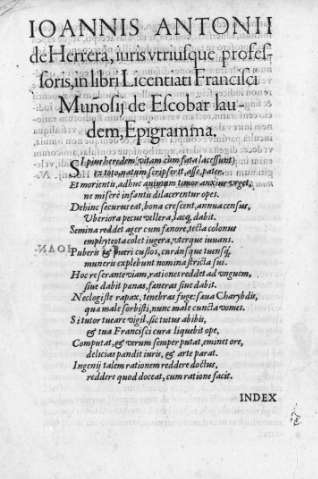 IOANNIS ANTONII
de Herrera, iuris vtriusque profes-
soris, in libri Licentiati Francisci
Muñosij de Escobar lau-
dem, Epigramma.
SI piur heredem, vitam cum fata lacessunt
ex toto natum scripserit, asse, pater.
Et morientis, adhuc animam timor anxius vrget,
ne miserè infantis dilacerentur opes.
Dehinc securus eat, bona crescent, annua census,
Vberiora pecus vellera, lacq, dabit.
Semina reddet ager cum fœnore, tecta colonus
emphyteota colet iugera, vterque iuuans.
Puberis & pueri custos, curansque tuensq,
muneris explebunt nomina stricta sui.
Hoc reserante viam, rationes reddet ad vnguem,
siue dabit pœnas, fœneras siue dabit.
Neclogiste rapax, tenebras fuge: sæua Charybdis,
qua male sorbisti, nunc male cuncta vomes.
Si tutor tueare vigil, sic tutus abibis,
& tua Francisci cura liquebit ope,
Computat, & verum semper putat, eminet ore,
delicias pandit iuris, & arte parat.
Ingenij talem rationem reddere doctus,
reddere quod doceat, cum ratione facit.
INDEX